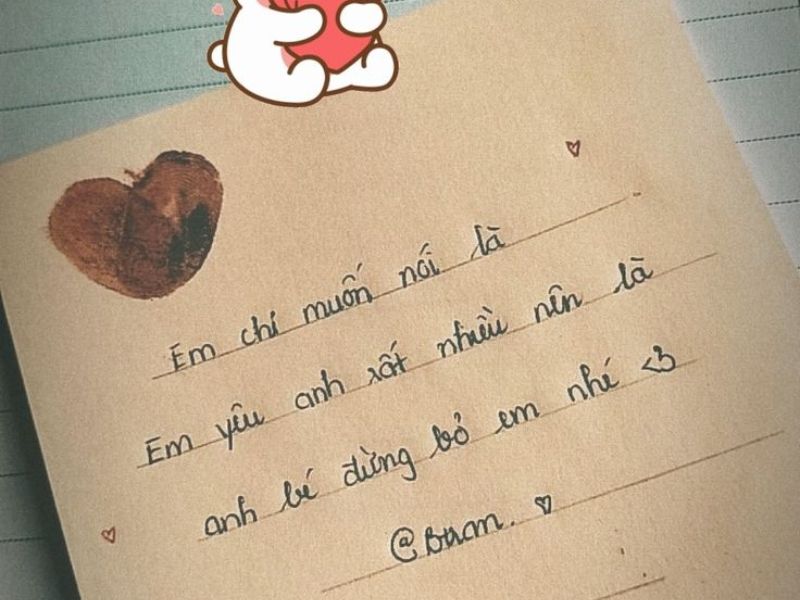 Em chỉ muốn nói là
Em yêu anh rất nhiều nên là
anh bé đừng bỏ em nhé <3